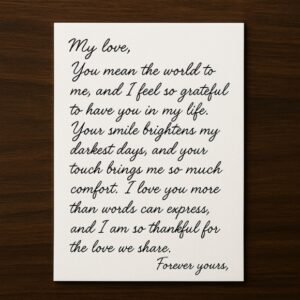 My love,
You mean the world to
me, and I feel so grateful
to have you in my life.
Your smile brightens my
darkest days, and your
touch brings me so much
comfort. I love you more
than words can express,
and I am so thankful for
the love we share.
Forever yours,